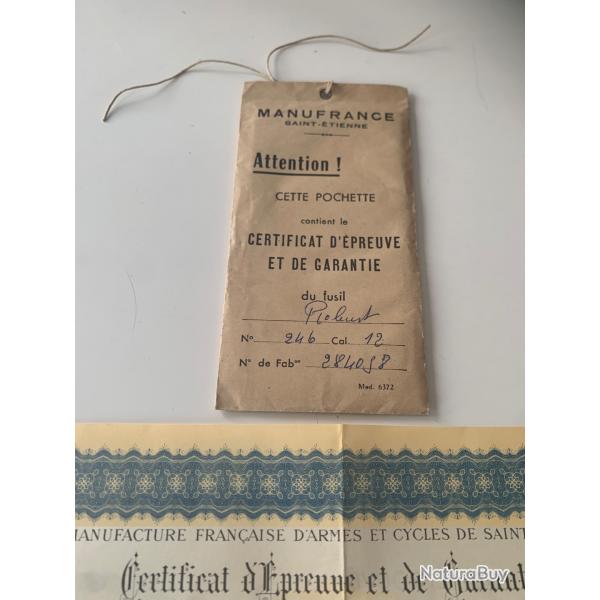 MANUFRANCE
SAINT-ÉTIENNE
Attention !
CETTE POCHETTE
contient le
CERTIFICAT D'ÉPREUVE
ET DE GARANTIE
du fusil
Robust
No 246 Cal. 12
No de Fabon 284058
Mod. 6322
MANUFACTURE FRANÇAISE D'ARMES ET CYCLES DE SAINT
Certificat d'Epreuve et de Garant
NaturaBuy